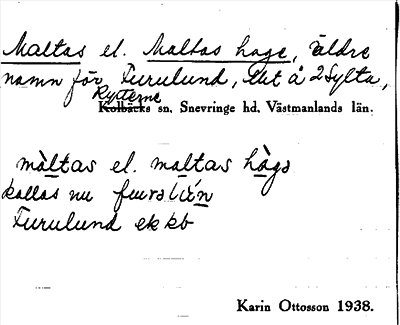 Maltas el. Maltas hage, äldre
namn för Furulund, lht å 2 Sylta,
Rytterne
Kolbäcks sn. Snevringe hd. Västmanlands län.
màltas el. maltas hàga
kallas nu furəlùn
Furulund ek kb
Karin Ottosson 1938.